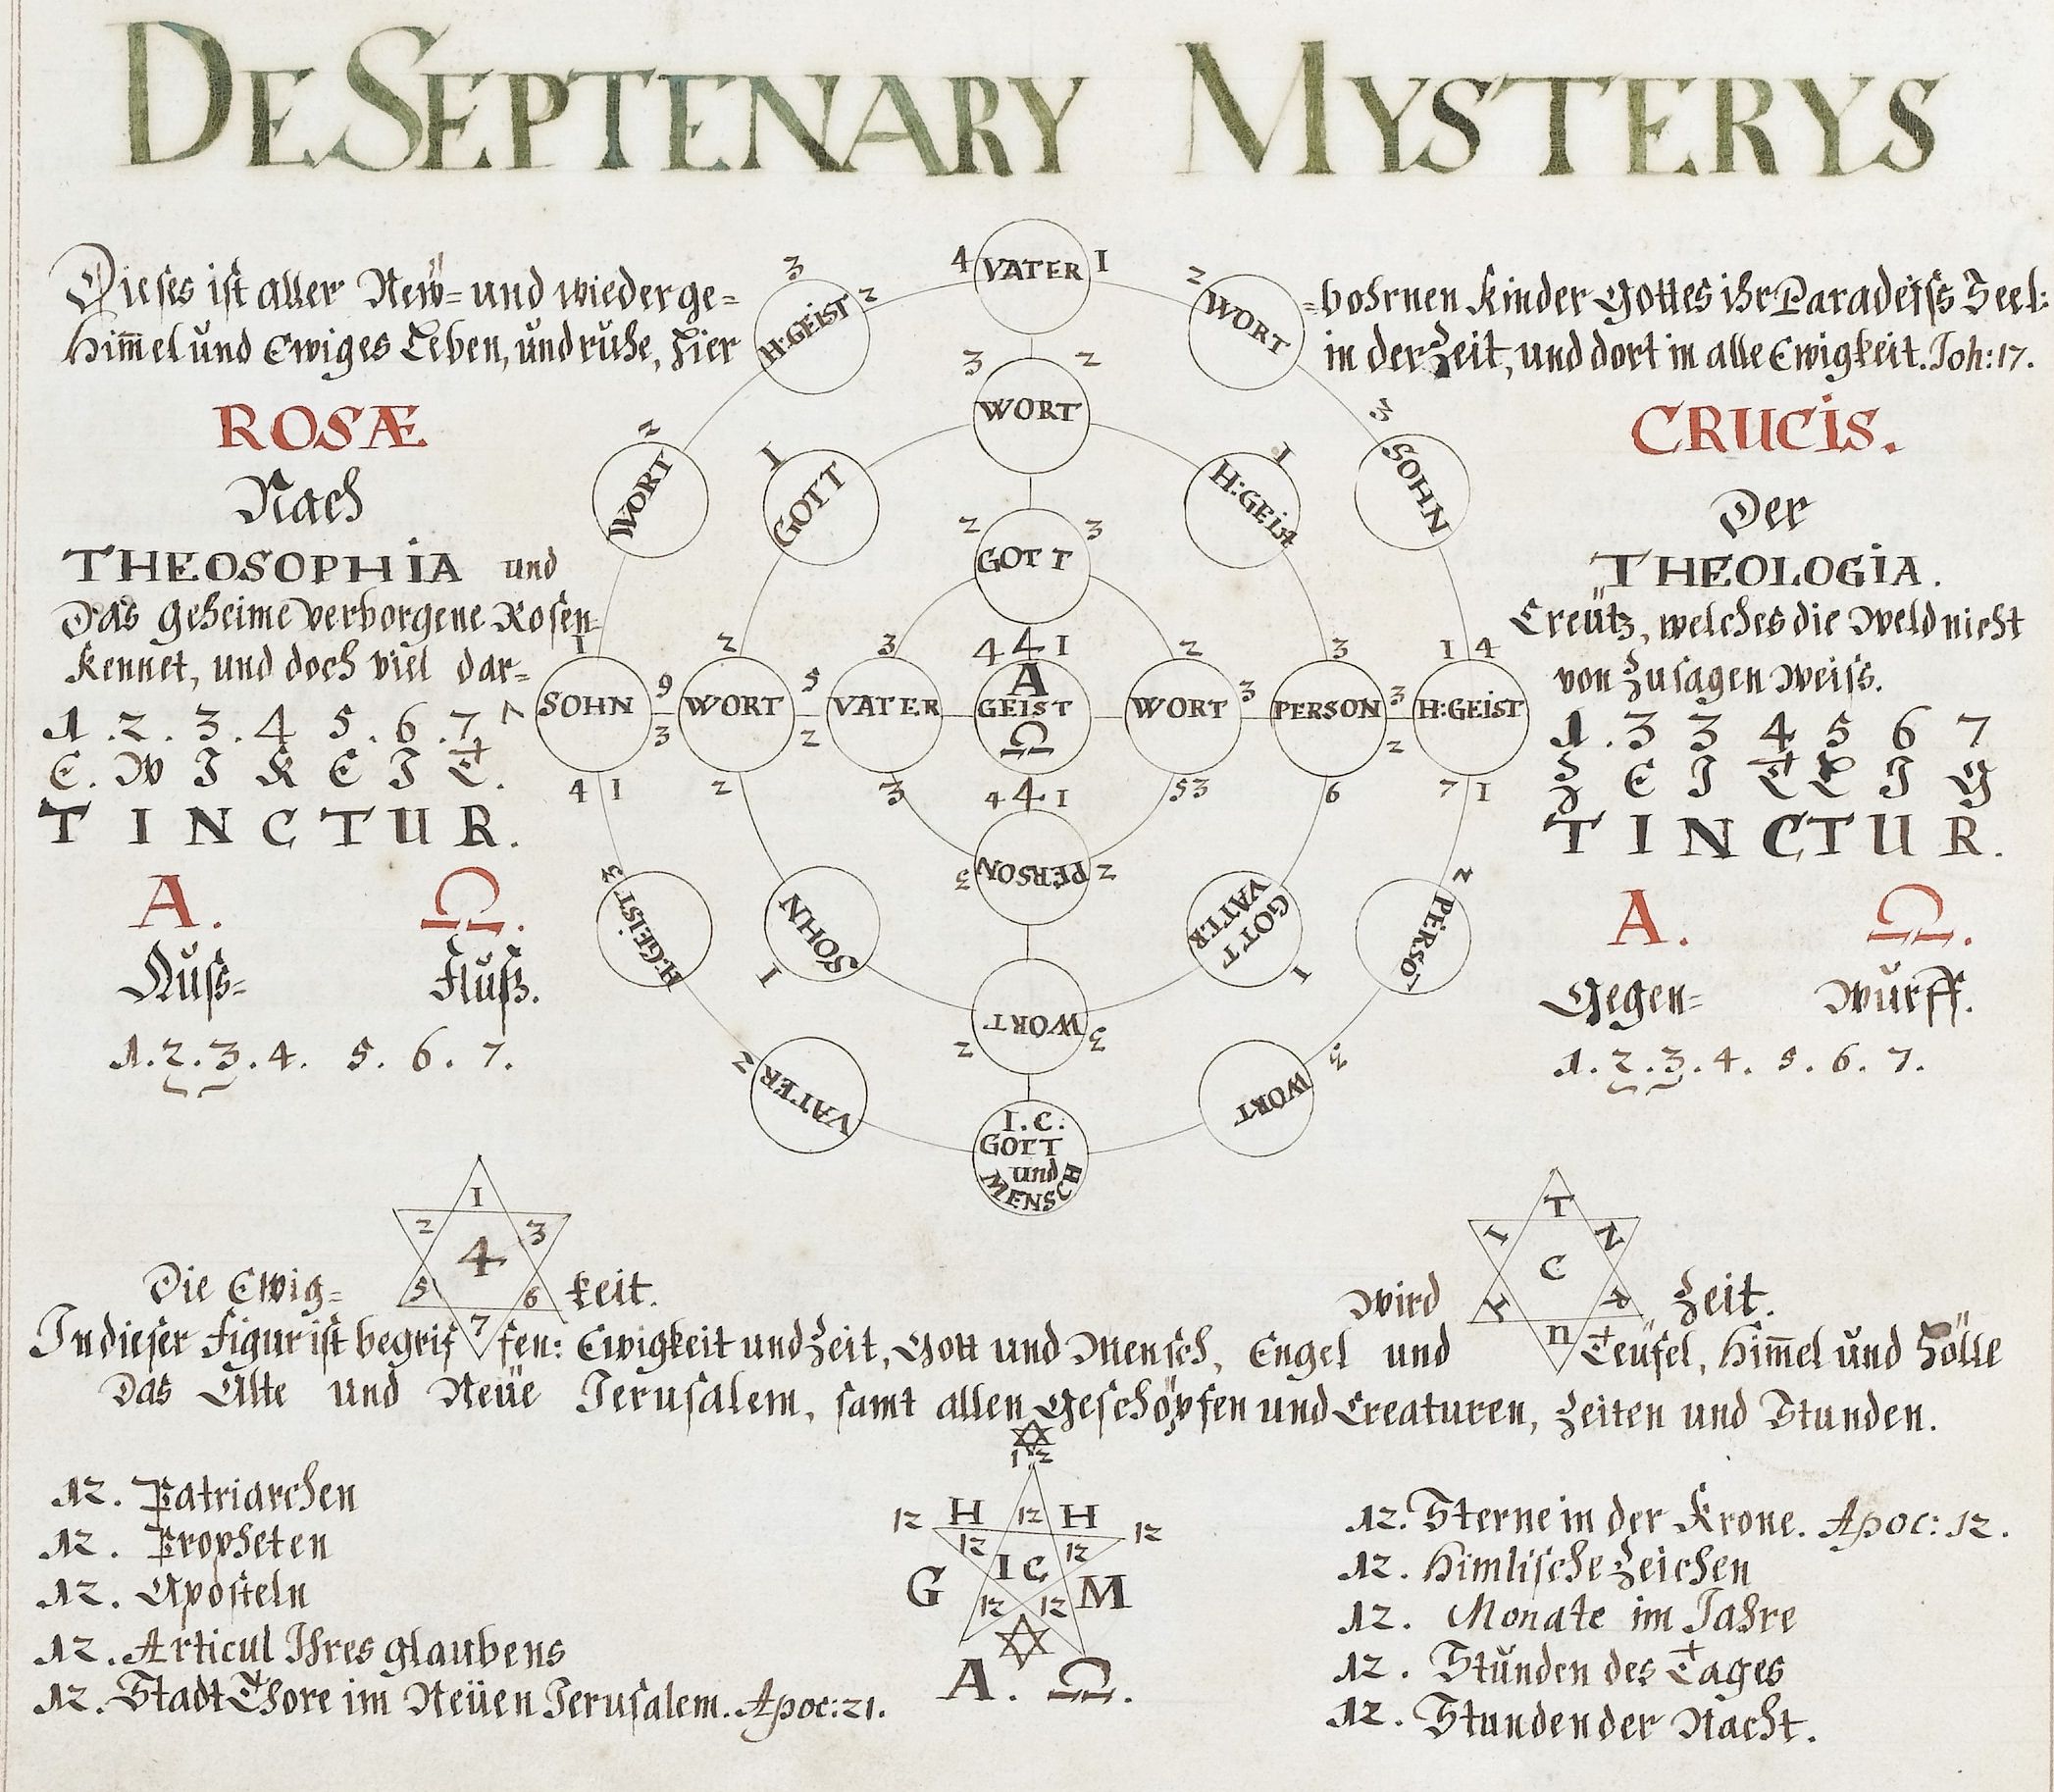 DE SEPTENARY MYSTERYS
Dieses ist aller New= und wiederge= =bohrnen Kinder Gottes ihr Paradeiss Seel:
Him̅el und Ewiges Leben, und ruhe, hier in der Zeit, und dort in alle Ewigkeit. Joh: 17.
ROSÆ
Nach
THEOSOPHIA und
Das geheime verborgene Rosen=
kennet, und doch viel dar=
1. 2. 3. 4 5. 6. 7
E. W I K E I T.
TINCTUR.
A. Ω.
Auss= Fluss.
1. 2. 3. 4. 5. 6. 7.
CRUCIS.
Der
THEOLOGIA.
Creutz, welches die Weld nicht
von Zusagen Weiss.
1. 3 3 4 5 6 7
Z E I T L I G
TINCTUR.
A. Ω.
Gegen= Wurff.
1. 2. 3. 4. 5. 6. 7.
4 VATER 1
3 H:GEIST 2
2 WORT
3 WORT 2
2 WORT
1 GOTT
1 H:GEIST
3 SOHN
2 GOTT 3
1 2 3 4 4 1 2 3 1 4
SOHN 9 3 WORT 5 2 VATER A GEIST Ω WORT 3 PERSON 3 2 H:GEIST
4 1 2 3 4 4 1 5 3 6 7 1
3 PERSON 2
3 H:GEIST
1 SOHN
GOTT VATTER 1
2 PERSO
2 WORT 3
2 VATER
WORT 3
I. C: GOTT und MENSCH
1
2 3
4
5 6
7
T
I N
C
T
n
Die Ewig= keit. wird Zeit.
In dieser figur ist begrif fen: Ewigkeit und Zeit, Gott und Mensch, Engel und Teufel, Him̅el und Hölle
Das Alte und Neue Jerusalem, samt allen Geschöpfen und Creaturen, Zeiten und Stunden.
12. Patriarchen
12. Propheten
12. Aposteln
12. Articul Ihres glaubens
12. Stadt Thore im Neüen Jerusalem. Apoc: 21.
12
12 H 12 H 12
12 12
IC
G M
12 12
A. Ω.
12. Sterne in der Krone. Apoc: 12.
12. Himlische Zeichen
12. Monate im Jahre
12. Stunden des Tages
12. Stunden der Nacht.